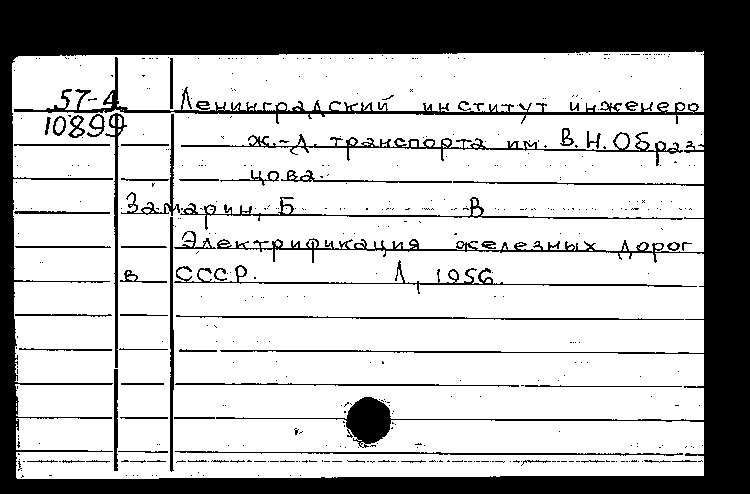 57-4
10899
Ленинградский институт инженеро
ж.-д. транспорта им. В.Н.Образ-
цова.
Замарин, Б В
Электрификация железных дорог
в СССР. Л, 1956.